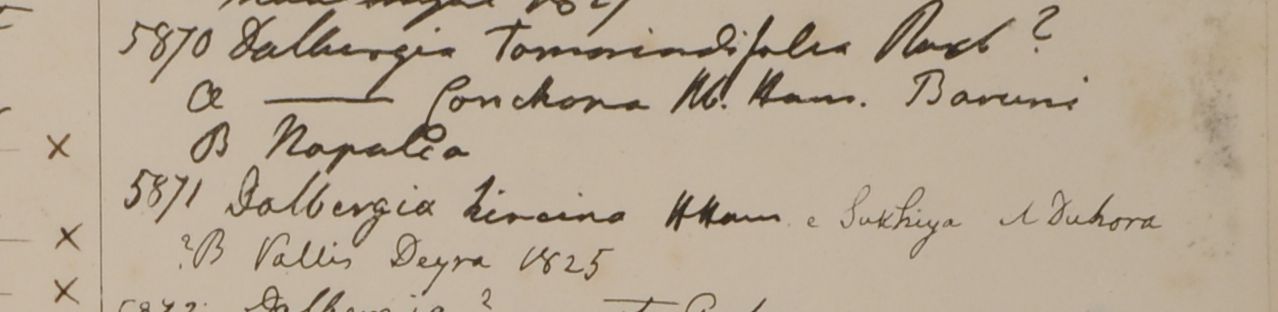 1827
5870 Dalbergia Tamarindifolia Roxb ?
a —— Conchona Hb. Ham. Baruni
B Napalia
5871 Dalbergia hircina HHam. e Sukhiya & Duhora
?B Vallis Deyra 1825
Dalbergia ?